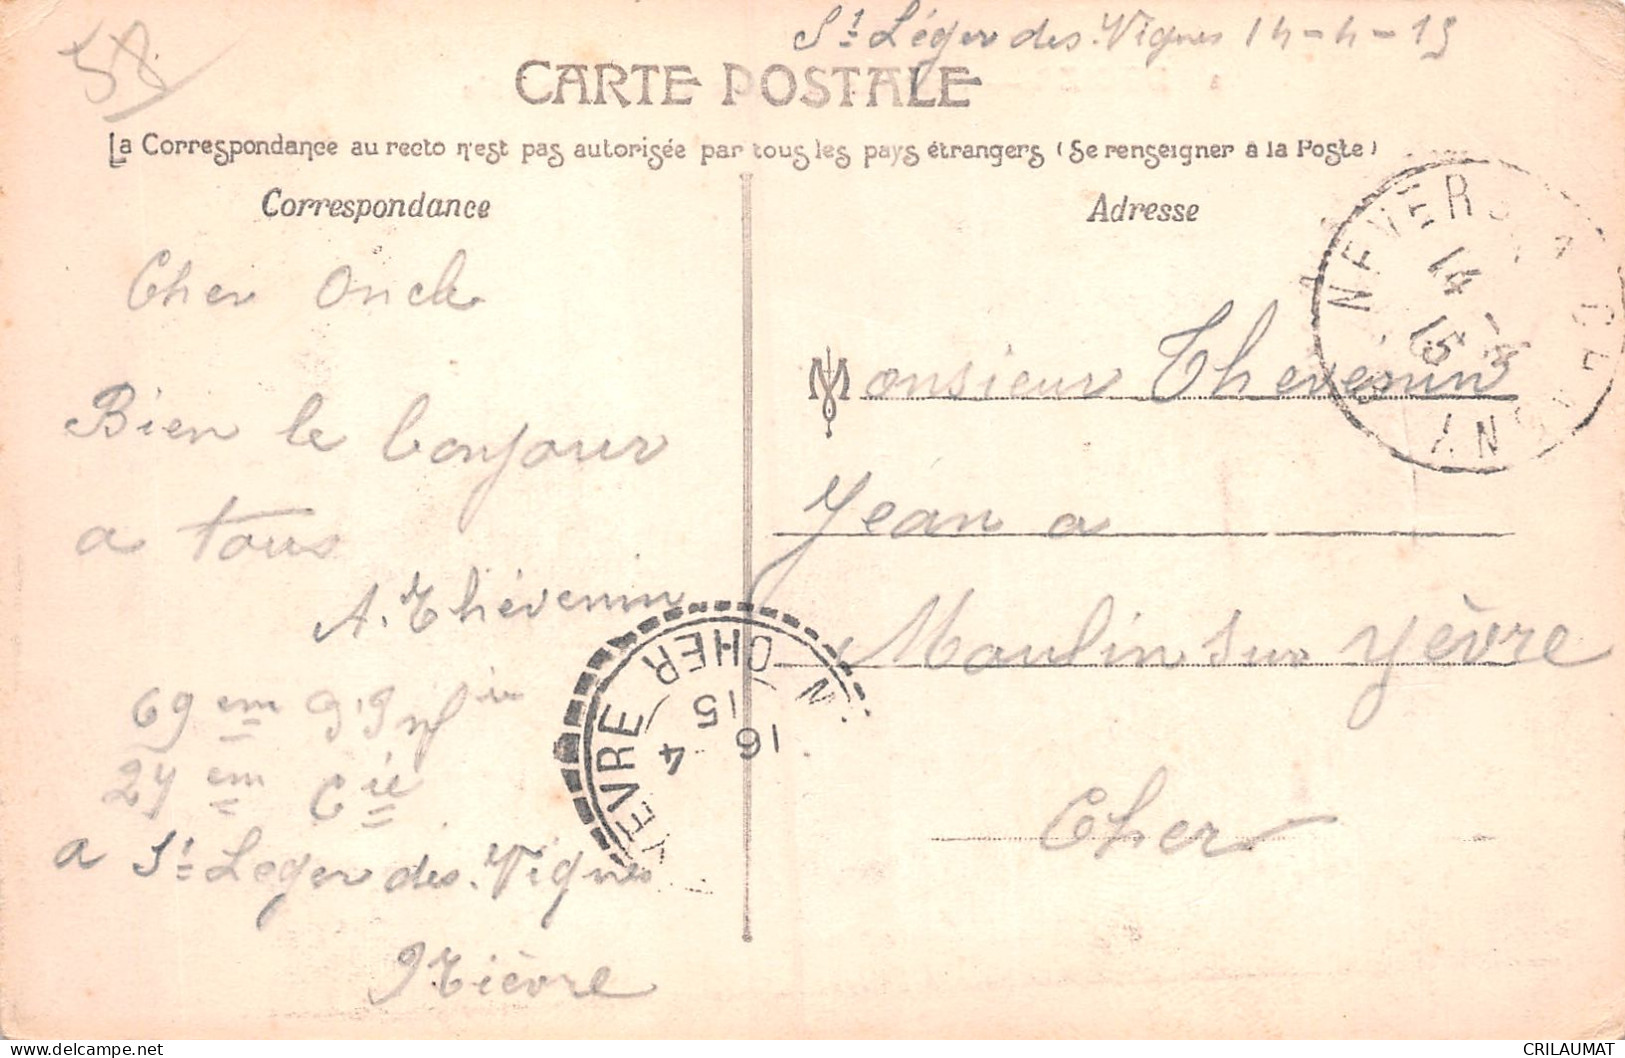 58
St Léger des Vignes 14-4-15
CARTE POSTALE
La Correspondance au recto n'est pas autorisée par tous les pays étrangers (Se renseigner à la Poste)
Correspondance
Cher Oncle
Bien le bonjour
a tous
A. Thévenin
69em
27em Cie
a St Leger des Vignes
Nièvre
Adresse
NEVERS A
14 -4
15
Monsieur Thevenin
Jean a
Moulin sur Yèvre
Cher
YEVRE CHER
16 4
15
www.delcampe.net
CRILAUMAT